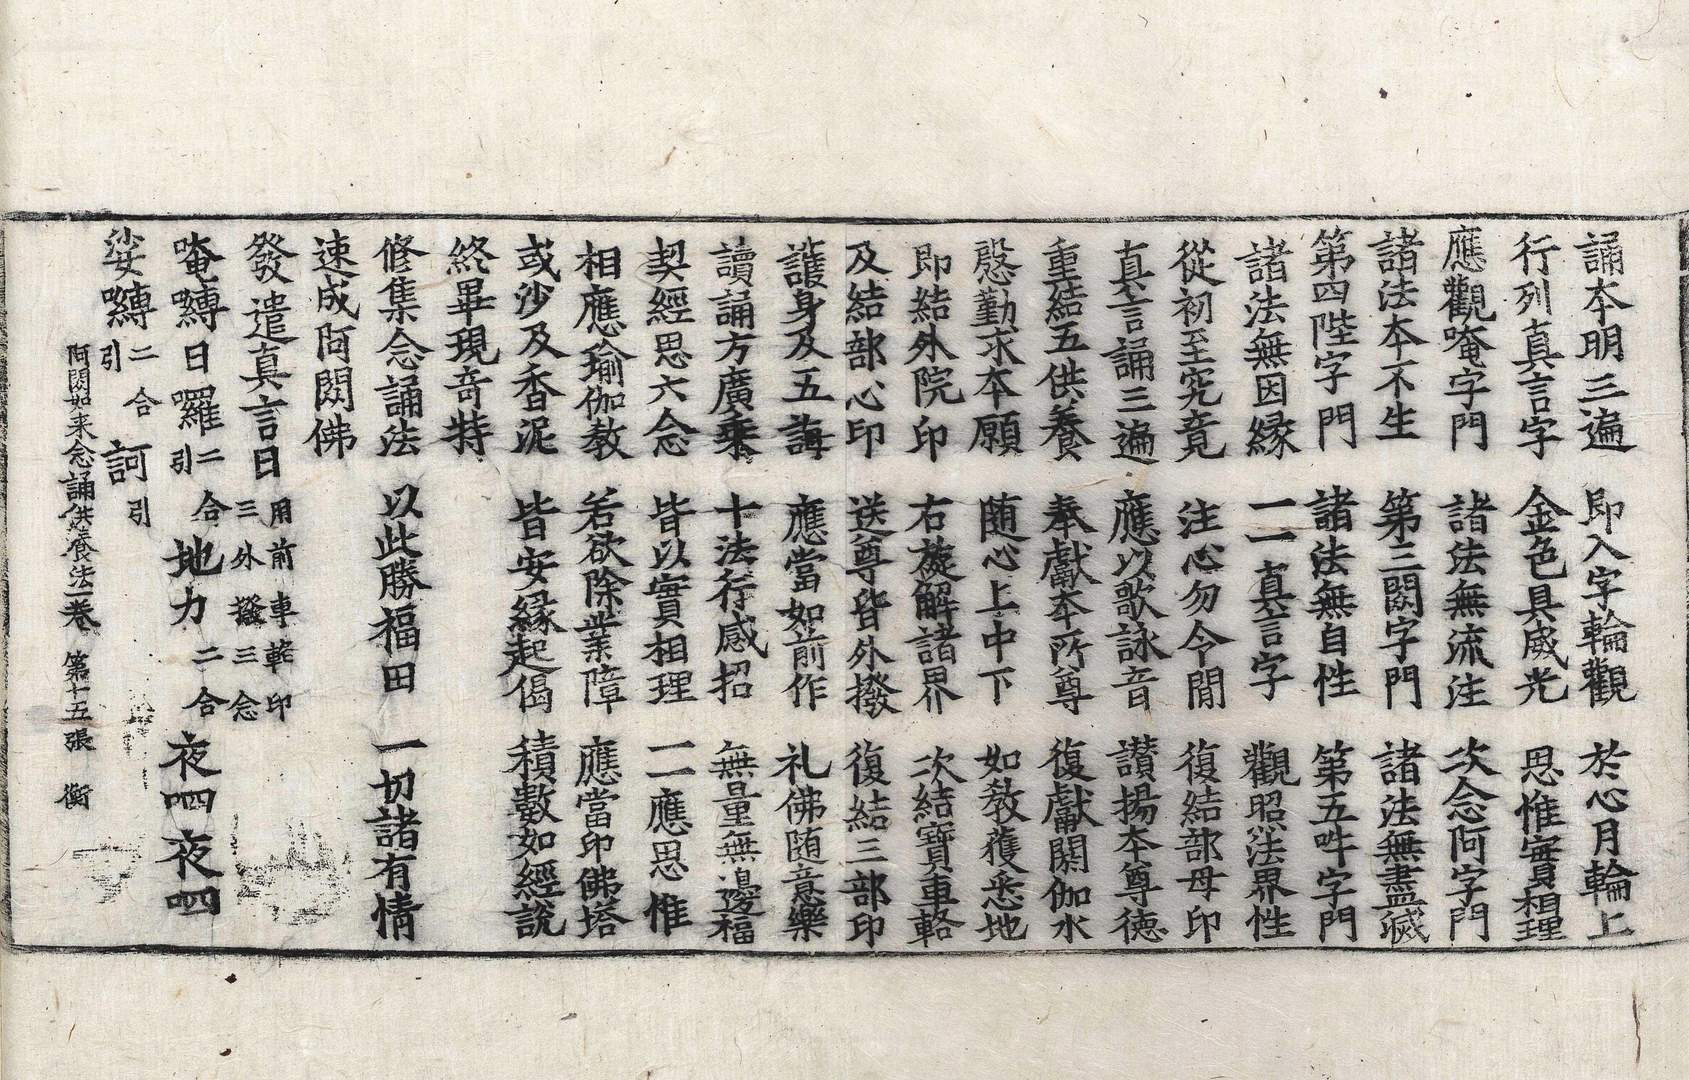 誦本明三遍 即入字輪觀 於心月輪上
行列真言字 金色具威光 思惟實相理
應觀唵字門 諸法無流注 次念阿字門
諸法本不生 第三閦字門 諸法無盡滅
第四陛字門 諸法無自性 第五吽字門
諸法無因緣 一一真言字 觀照法界性
從初至究竟 注心勿令間 復結部母印
真言誦三遍 應以歌詠音 讚揚本尊德
重結五供養 奉獻本所尊 復獻閼伽水
慇勤求本願 随心上中下 如教獲悉地
即結外院印 右旋解諸界 次結寶車輅
及結部心印 送尊皆外撥 復結三部印
護身及五誨 應當如前作 礼佛随意樂
讀誦方廣乘 十法行感招 無量無邊福
契經思六念 皆以實相理 一一應思惟
相應瑜伽教 若欲除業障 應當印佛塔
或沙及香泥 皆安緣起偈 積數如經說
終畢現奇特
修集念誦法 以此勝福田 一切諸有情
速成阿閦佛
發遣真言曰 用前車輅印 三外撥三念
唵嚩日囉 二合引 地力 二合 夜呬夜呬
娑嚩 二合引 訶 引
阿閦如来念誦供養法一卷 第十五張 衡